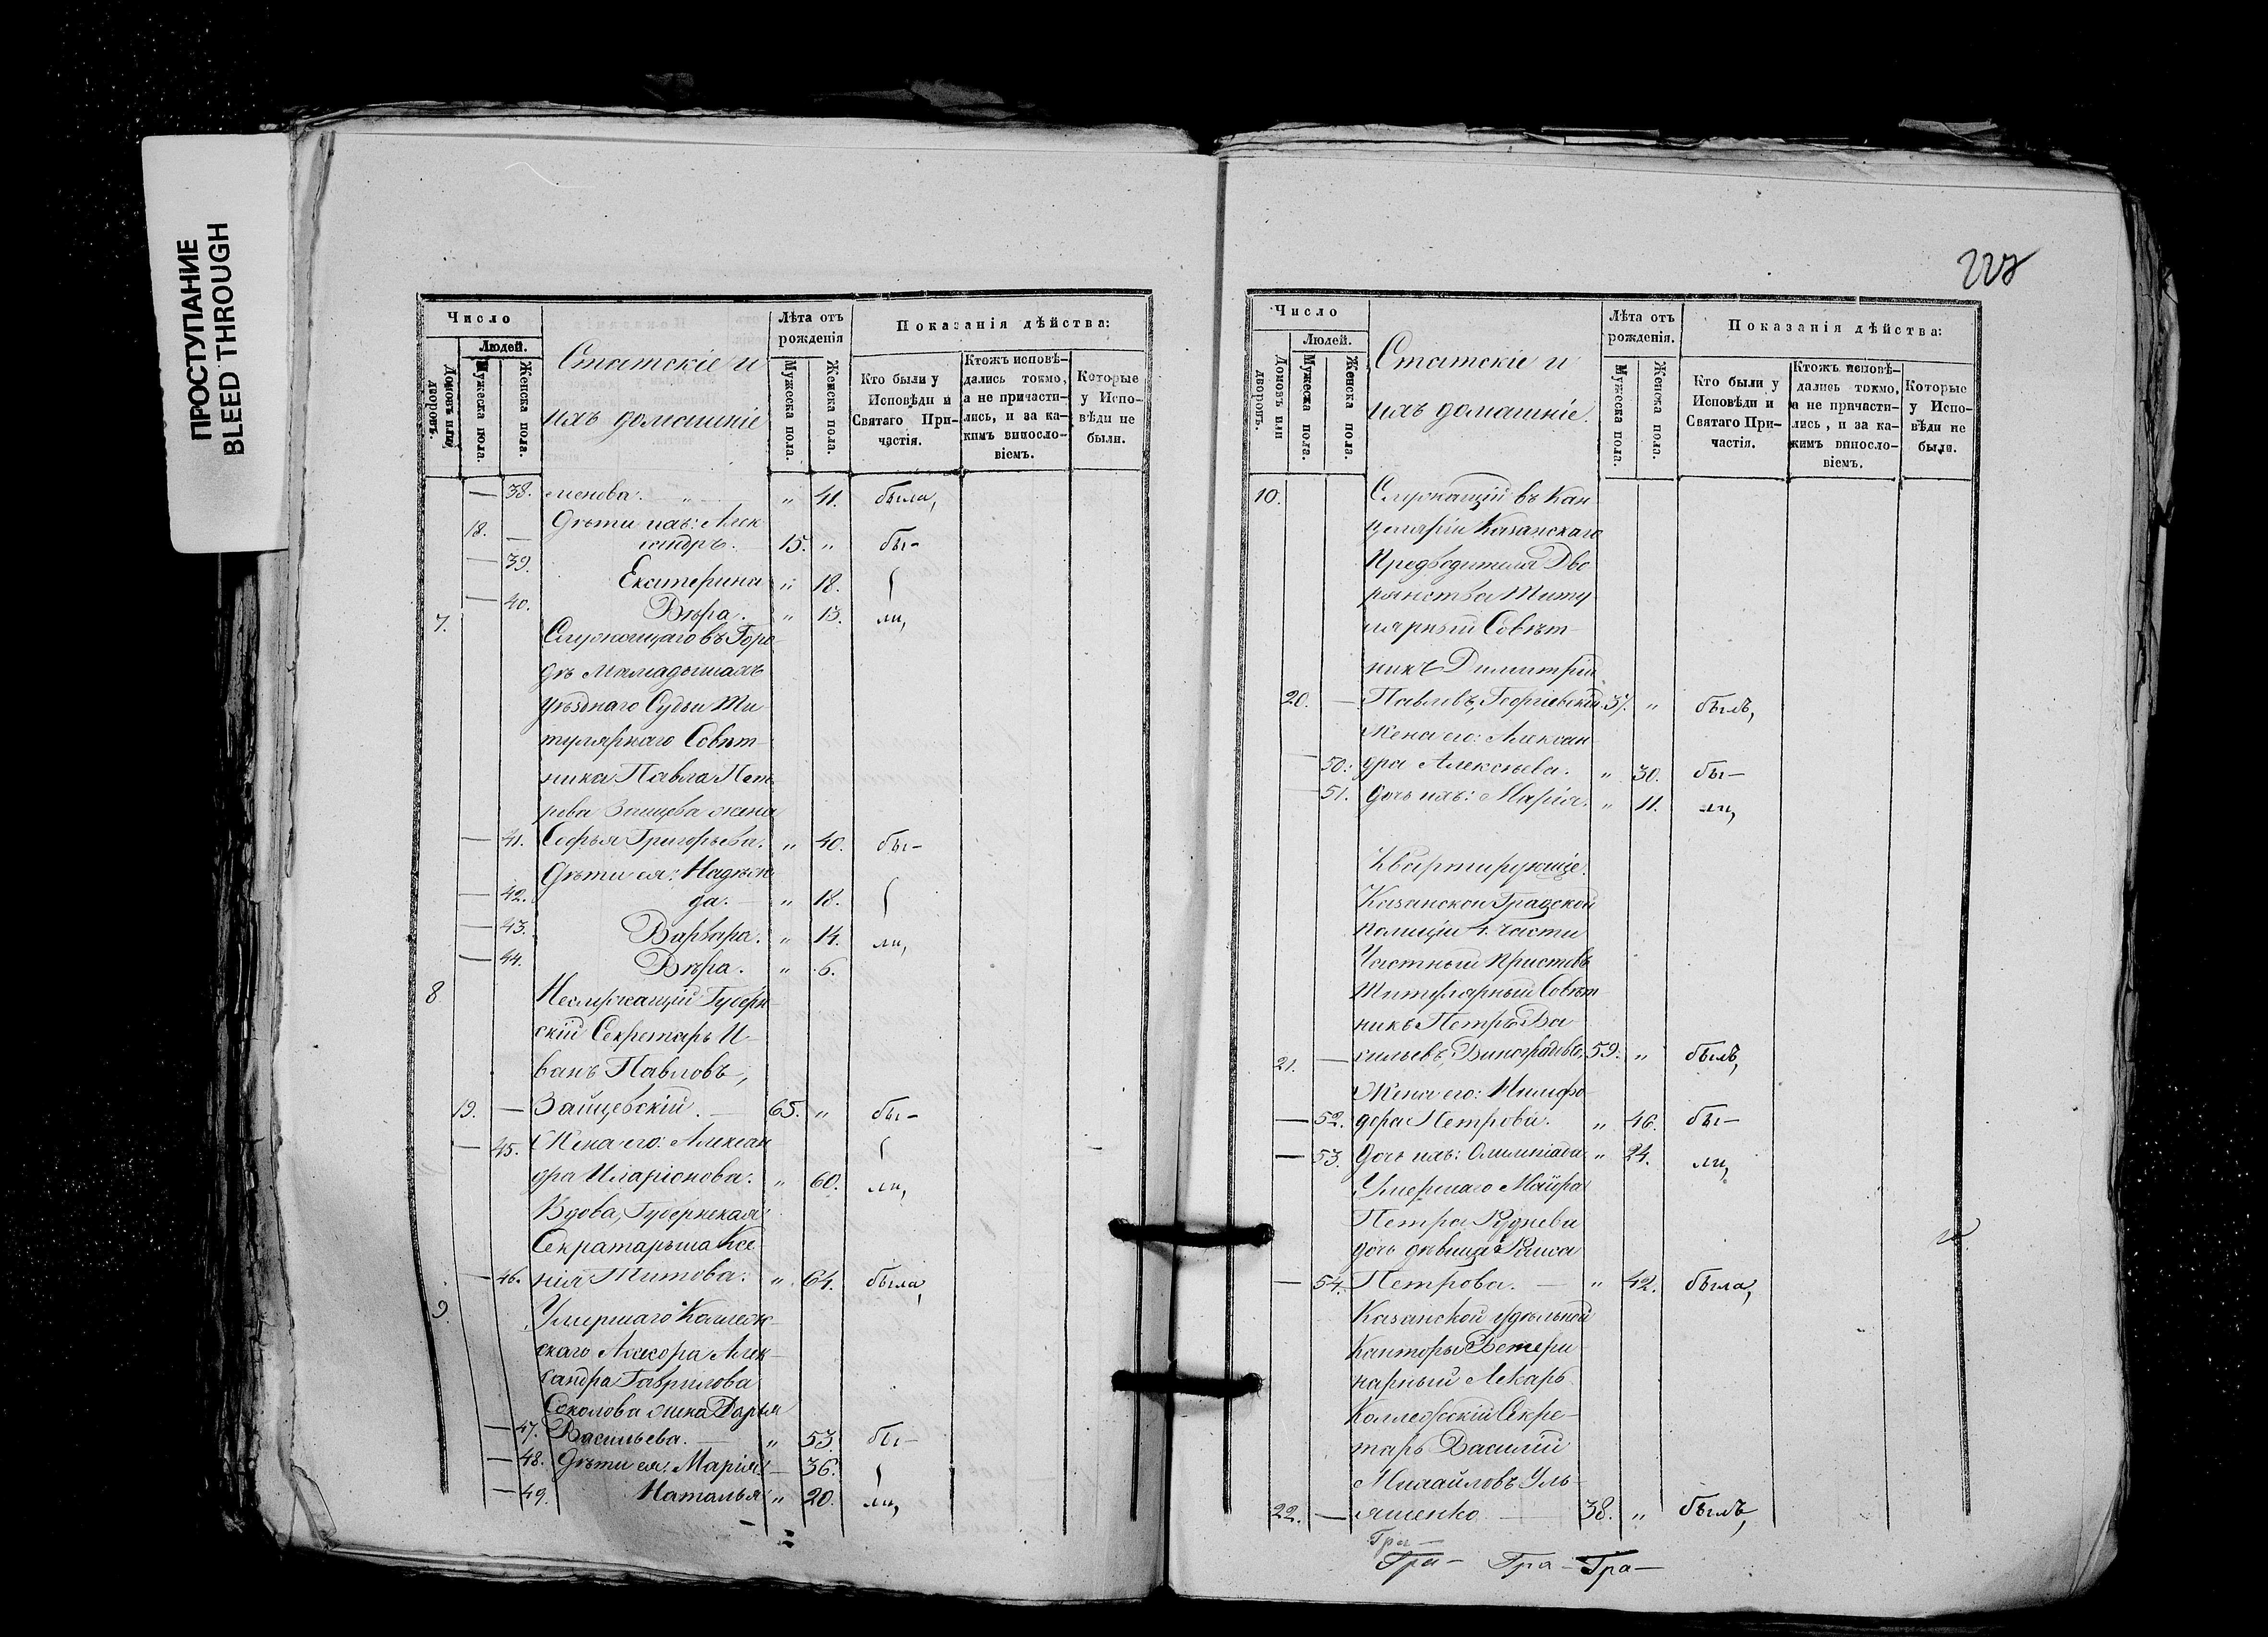 ПРОСТУПАНИЕ
BLEED THROUGH
Число
Людей.
Домовъ или дворовъ.
Мужеска пола.
Женска пола.
Статскіе и
ихъ домашніе
Лѣта отъ рожденія
Мужеска пола.
Женска пола.
Показанія дѣйства:
Кто были у Исповѣди и Святаго Причастія.
Ктожъ исповѣдались токмо, а не причастились, и за какимъ винословіемъ.
Которые у Исповѣди не были.
— 38. менова. „ 41. была,
Дѣти ихъ: Алек
18. — сандръ. 15. „ бы-
— 39. Екатерина „ 18.
— 40. Вѣра. „ 13. ли,
7. Служащаго въ Горо
дѣ Мамадышахъ
уѣзднаго Судьи Ти
тулярнаго Совѣт-
ника Павла Пет
рова Зайцева жена
— 41. Софья Григорьева. „ 40. бы-
Дѣти ея: Надѣж
— 42. да. — „ 18.
— 43. Варвара. „ 14. ли,
— 44. Вѣра. „ 6.
8 Неслужащій Губерн
скій Секретарь И-
ванъ Павловъ,
19. — Зайцевскій. — 65. „ бы-
— 45. Жена его: Алексан
дра Иларіонова. „ 60. ли,
Вдова, Губернская
Секратарша Ксе
— 46. нія Титова. „ 64. была,
9. Умершаго Коллеж-
скаго Ассесора Алек-
сандра Гаврилова
Соколова жена Дарья
— 47. Васильева. — „ 53. бы-
— 48. Дѣти ея: Марія. — 36.
— 49. Наталья „ 20. ли,
Число
Людей.
Домовъ или дворовъ.
Мужеска пола.
Женска пола.
Статскіе и
ихъ домашніе.
Лѣта отъ рожденія.
Мужеска пола.
Женска пола.
Показанія дѣйства:
Кто были у Исповѣди и Святаго Причастія.
Ктожъ исповѣдались токмо, а не причастились, и за какимъ винословіемъ.
Которые у Исповѣди не были.
10. Служащій въ Кан
целяріи Казанскаго
Предводителя Дво
рянства Титу
лярный Совѣт-
никъ Димитрій
20. — Павловъ, Георгіевскій 37. „ былъ,
Жена его: Алексан
— 50. дра Алексѣева. „ 30. бы-
51. Дочь ихъ: Марія. „ 11. ли,
Квартирующіе.
Казанской Градской
Полиціи 4. части
Частный Приставъ
Титулярный Совѣт
никъ Петръ Ва
21. — сильевъ, Виноградовъ, 59. „ былъ,
Жена его: Нимфо
— 52. дора Петрова. „ 46. бы-
— 53. Дочь ихъ: Олимпіада „ 24. ли,
Умершаго Маіора
Петра Руднева
дочь дѣвица Раиса
— 54. Петрова. — „ 42. была,
Казанской Удѣльной
Канторы Ветери
нарный Лекарь
Коллежскій Секре-
тарь Василій
Михайловъ Уль-
22. — яшенко — 38. „ былъ,
Гра —
Гра — Гра — Гра —